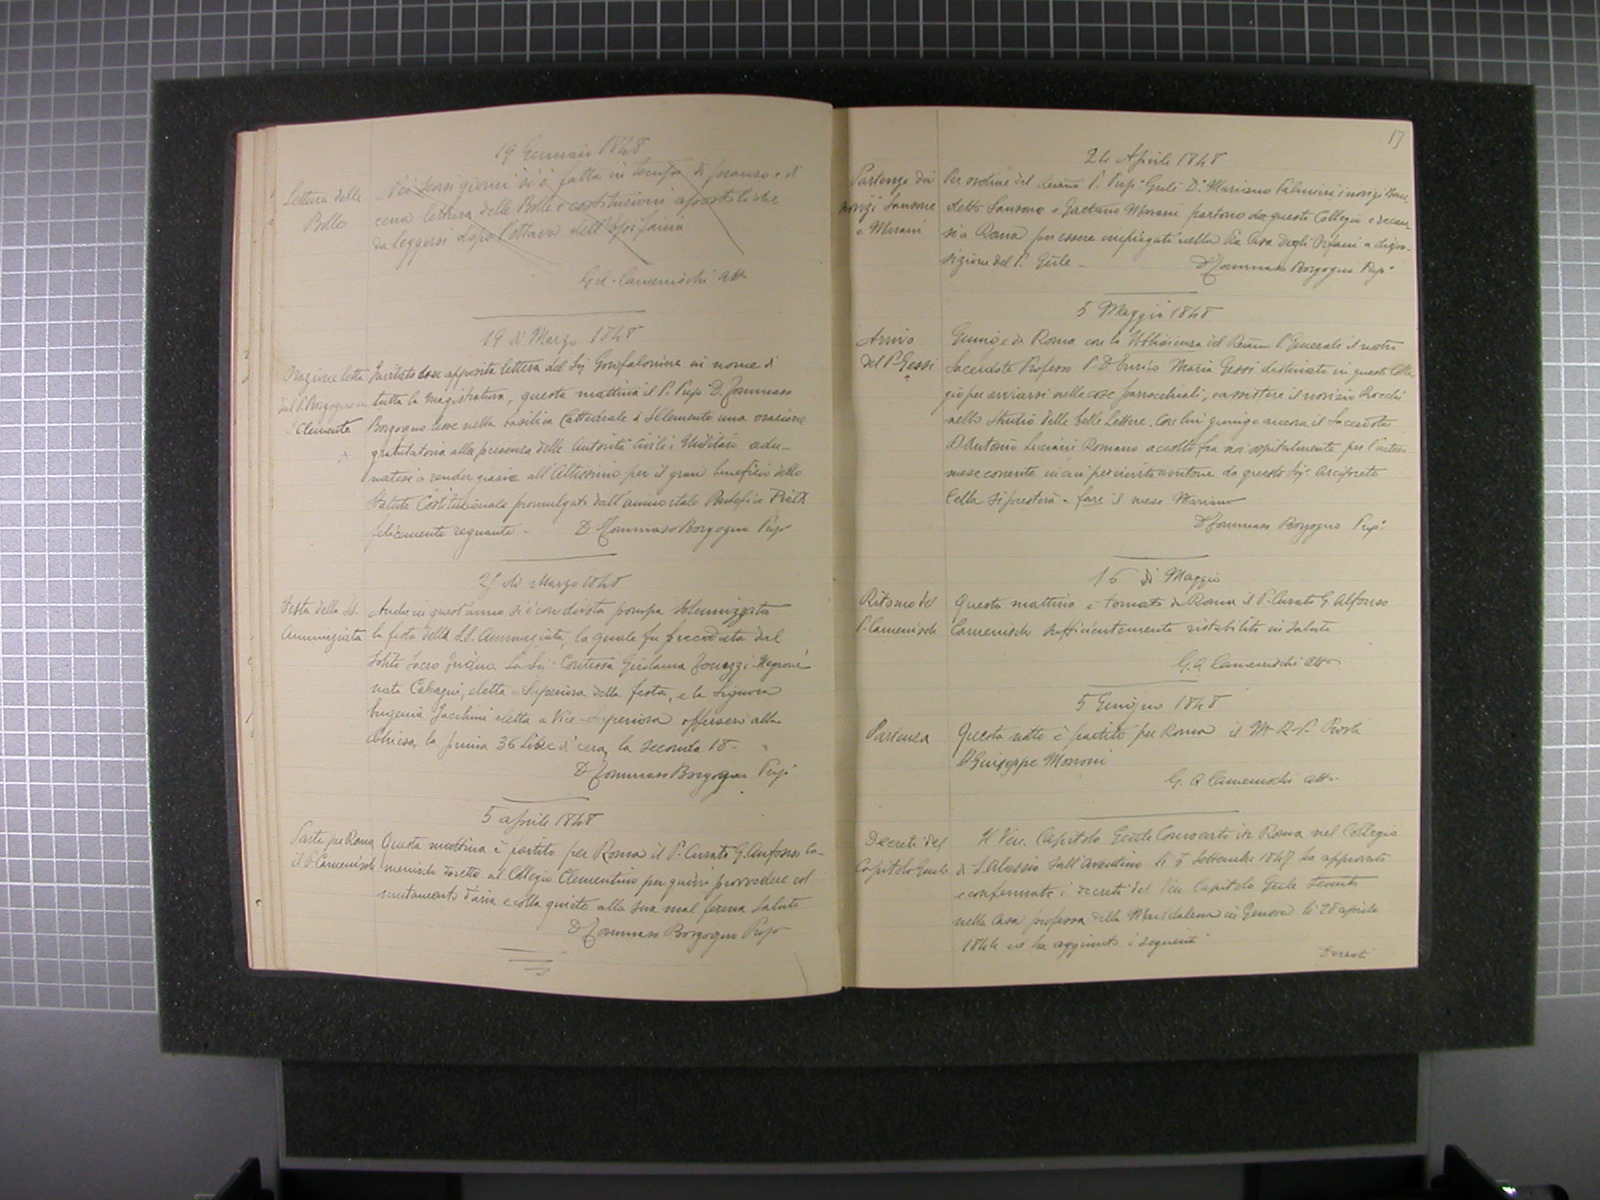 19 Gennaio 1848
Lettura delle
Bolle
Nei scorsi giorni si è fatta in tempo di pranzo e di
cena lettura delle Bolle e costituzioni apostoliche
da leggersi dopo l'ottava dell'Epifania
G A. Camenischi att.
19 di Marzo 1848
Orazione letta
dal P. Borgogno in
S. Clemente
Invitato con apposita lettera del Sig Gonfaloniere in nome di
tutta la magistratura, questa mattina il P. Prep. D. Tommaso
Borgogno lesse nella basilica Cattedrale di S. Clemente una orazione
gratulatoria alla presenza delle Autorità Civili e Militari adu-
natesi a render grazie all'Altissimo per il gran beneficio dello
Statuto Costituzionale promulgato dall'animo del Pontefice Pio IX
felicemente regnante -
D Tommaso Borgogno Prep.
25 di Marzo 1848
Festa della SS.
Annunziata
Anche in quest'anno si è con divota pompa solennizzata
la festa della SS. Annunziata, la quale fu preceduta dal
solito sacro triduo. La Sig. Contessa Girolama Negroni
nata Calcagni, eletta a Superiora della festa, e la Signora
Eugenia Jacchini eletta a Vice-Superiora offersero alla
Chiesa, la prima 36 Libre di cera, la seconda 18 -
D Tommaso Borgogno Prep.
5 aprile 1848
Parte per Roma
il P. Camenisch
Questa mattina è partito per Roma il P. Curato G. Anfonso Ca-
menisch diretto al Collegio Clementino per quivi provvedere col
mutamento d'aria e colla quiete alla sua mal ferma salute
D Tommaso Borgogno Prep.
17
24 Aprile 1848
Partenza dei
novizi Sansone
e Morani
Per ordine del Rev.mo P. Prep. Gnrle D. Mariano Palmieri i novizi Bene-
detto Sansone e Gaetano Morani partono da questo Collegio e vecan-
si a Roma per essere impiegati nella Pia Casa degli Orfani a dispo-
sizione del P. Gnrle -
D Tommaso Borgogno Prep.
5 Maggio 1848
Arrivo
del P. Gessi
Giunge da Roma con la Ubbidienza del Rev.mo P. Generale il nostro
Sacerdote Professo P. D. Enrico Maria Gessi destinato in questo Colle-
gio per avviarsi nelle cose parrocchiali, e assistere il novizio Rocchi
nello studio delle belle Lettere. Con lui giunge ancora il Sacerdote
D Antonio Luciani Romano accolto fra noi ospitalmente per l'intero
mese corrente in cui per invito avutone da questo Sig. Arciprete
Cella si presterà a fare il mese Mariano
D Tommaso Borgogno Prep.
16 di Maggio
Ritorno del
P. Camenisch
Questa mattina è tornato da Roma il P. Curato G. Alfonso
Camenisch sufficientemente ristabilito in salute
G. A Camenischi att.
5 Giugno 1848
Partenza
Questa notte è partito per Roma il M. R. P.
D Giuseppe Morroni
G. A Camenischi att.
Decreti del
Capitolo Gnrle
Il Ven. Capitolo Gnrle Convocato in Roma nel Collegio
di S. Alessio sull'Aventino li 5 Settembre 1847 ha approvati
e confermati i decreti del Ven Capitolo Gnrle tenuto
nella Casa professa della Maddalena in Genova li 28 aprile
1844 ed ha aggiunti i seguenti
Decreti